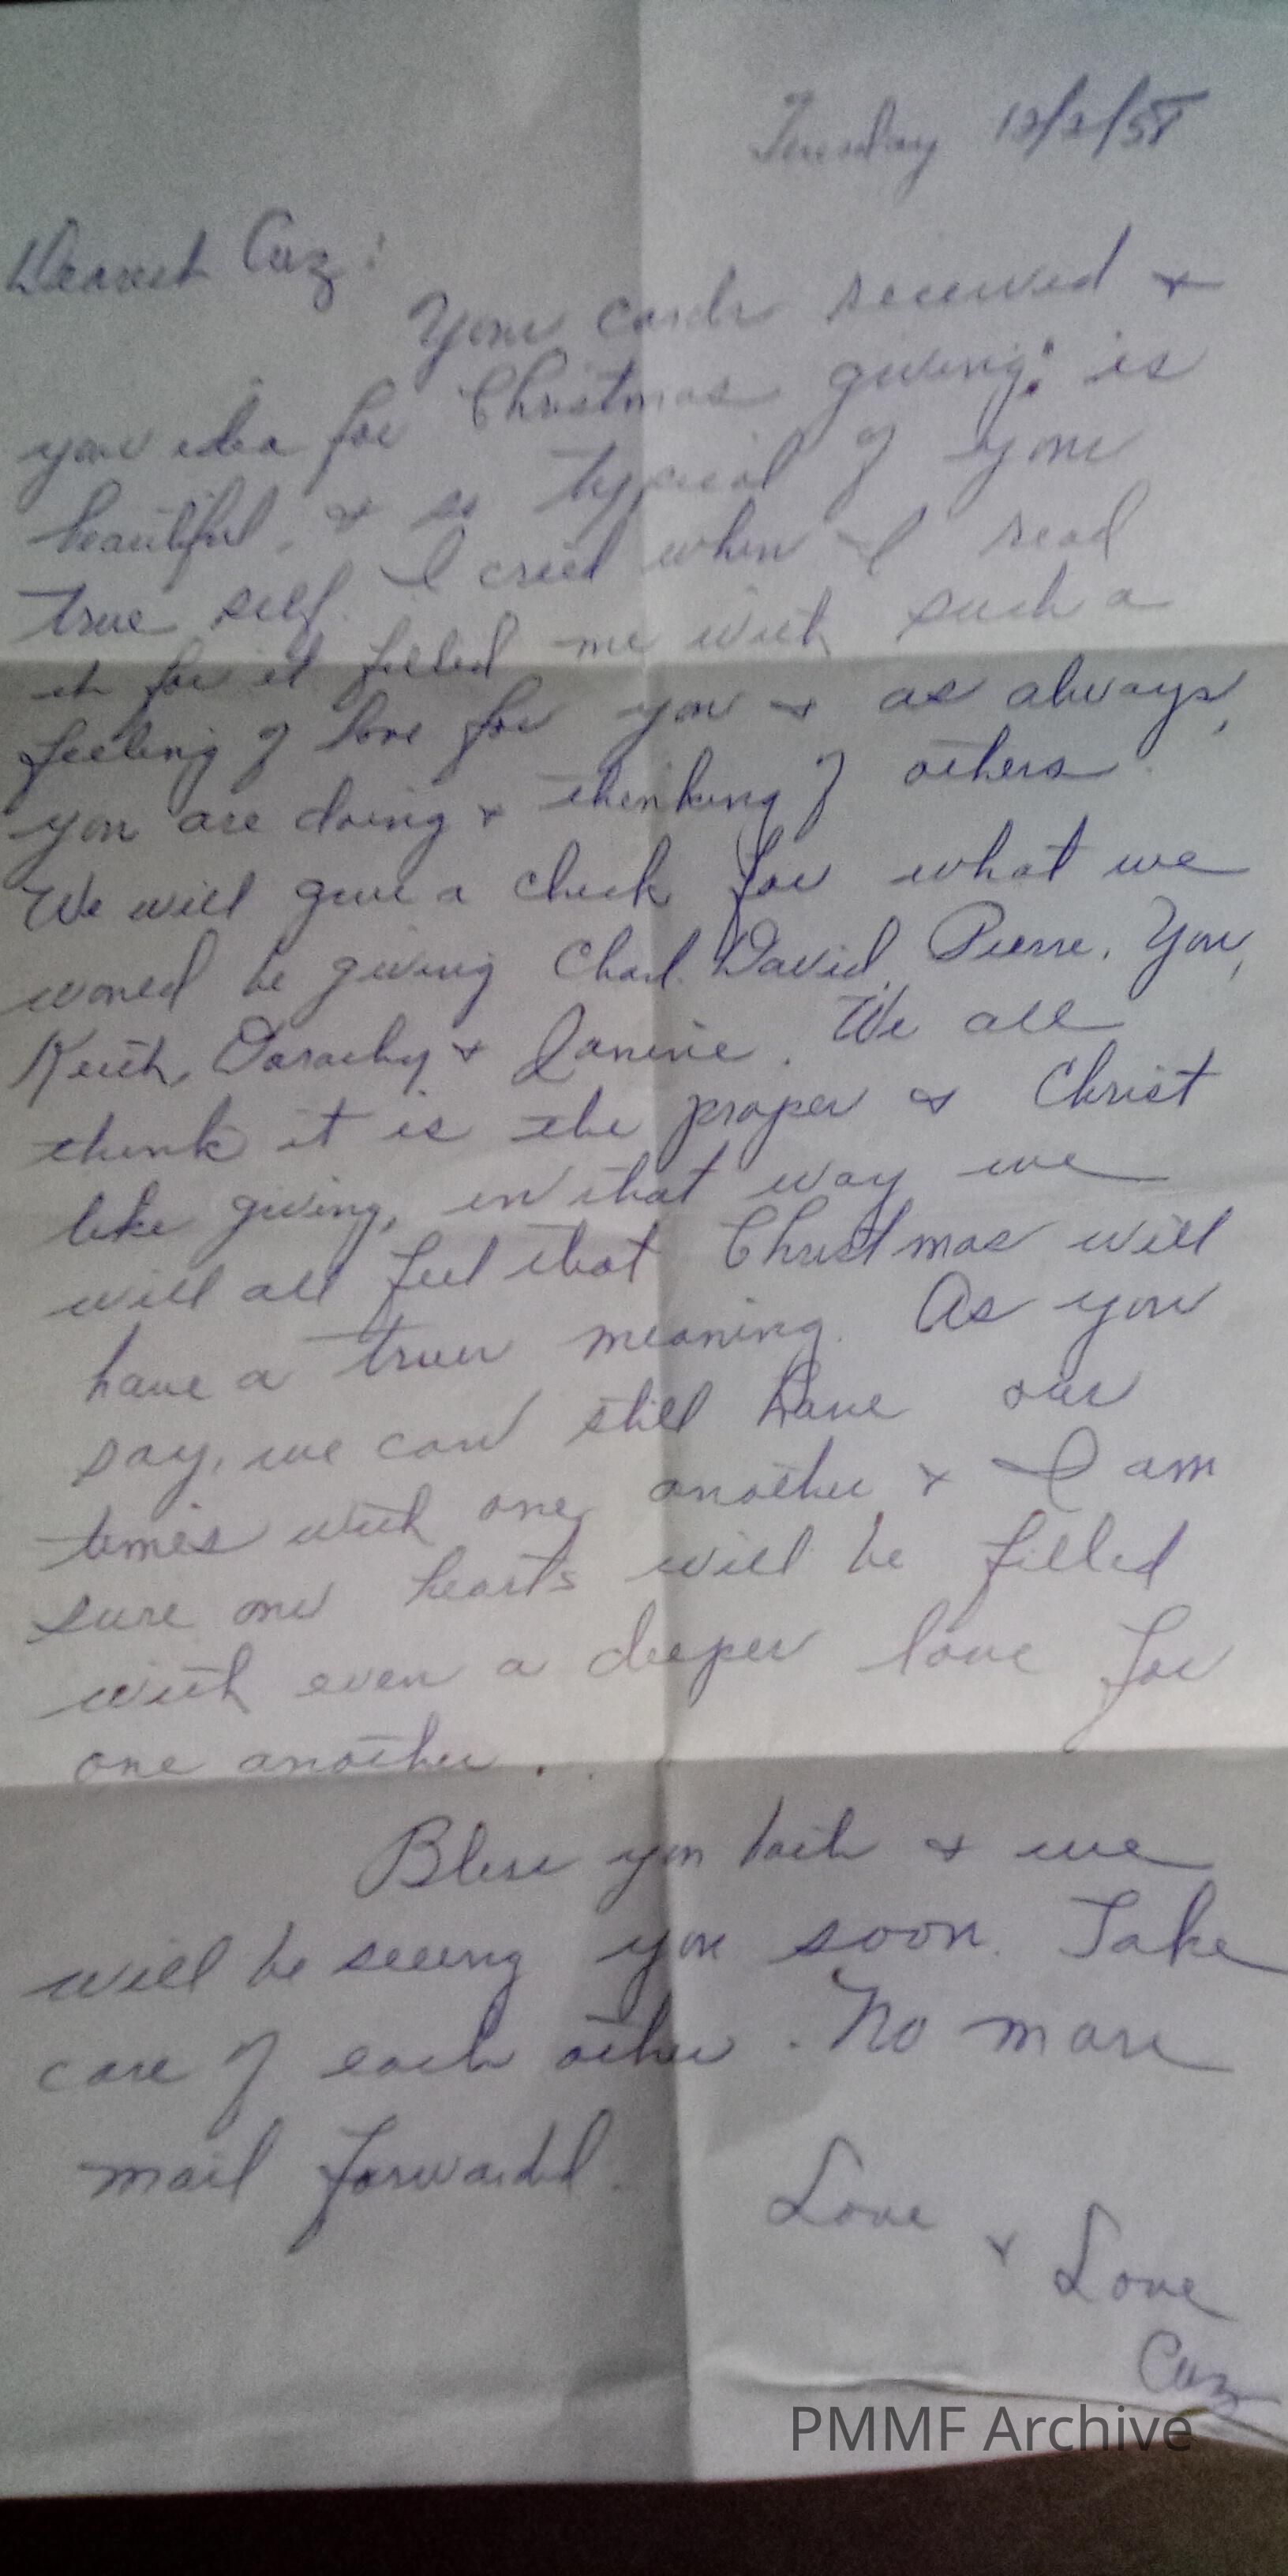 Tuesday 12/2/58
Dearest Cuz:
Your cards received &
your idea for Christmas giving: is
beautiful, & so typical of your
true self. I cried when I read
it for it filled me with such a
feeling of love for you & as always,
you are doing & thinking of others.
We will give a check for what we
would be giving Chad. David, Pierre, You,
Keith, Dorothy & Janine. We all
think it is the proper & Christ
like giving, in that way we
will all feel that Christmas will
have a truer meaning. As you
say, we can still have our
times with one another & I am
sure our hearts will be filled
with even a deeper love for
one another.
Bless you both & we
will be seeing you soon. Take
care of each other. No more
mail forwarded.
Love
& Love
Cuz
PMMF Archive